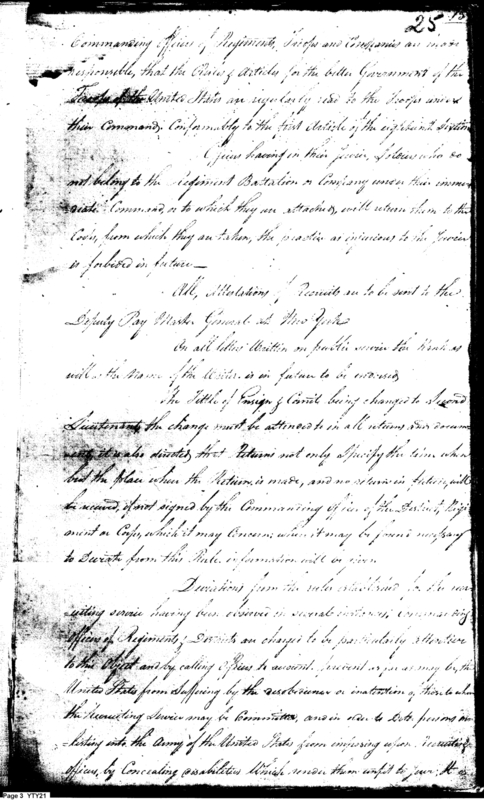 25
Commanding officers of Regiments, Troops and Companies are made
responsible, that the Rules & Articles for the better Government of the
Troops of the United States are regularly read to the Troops under
their Command, Conformably to the first Article of the eighteenth Section
Officers having in their Service, Soldiers who do
not belong to the Regiment Battalion or Company under their imme
diate Command, or to which they are attached, will return them to the
Corps, from which they are taken, the practice as injurious to the Service
is forbided in future
All, Attestations of Recruits are to be sent to the
Deputy Pay Master General at New York
On all letters Written on public service the Rank as
will as the Name of the Writer is in future to be endorsed
The Tittle of Ensign & Cornet being changed to Second
Lieutenant, the change must be attended to in all returns and docum
ents, it is also directed, that Returns not only Specify the time when
but the place where the Return, is made, and no return in future, will
be received, if not signed by the Commanding officer of the District, Regi
ment or Corps, which it may Concern; when it may be found necessary
to Deviate from this Rule, information will be given
Deviations from the rules established for the recr
uiting service having been observed in several instances; commanding
officers of Regiments & Districts are charged to be particularly attentive
to this Object and by calling officers to account, prevent as far as may be, the
United States from Suffering by the disobedience or inattention of those to whom
the Recruiting Service may be Committed, and in order to Deter persons in
listing into the Army of the United States from imposing upon Recruiting
officers, by Concealing disabilities Which render them unfit to Serve, It is
Page 3 YTY21